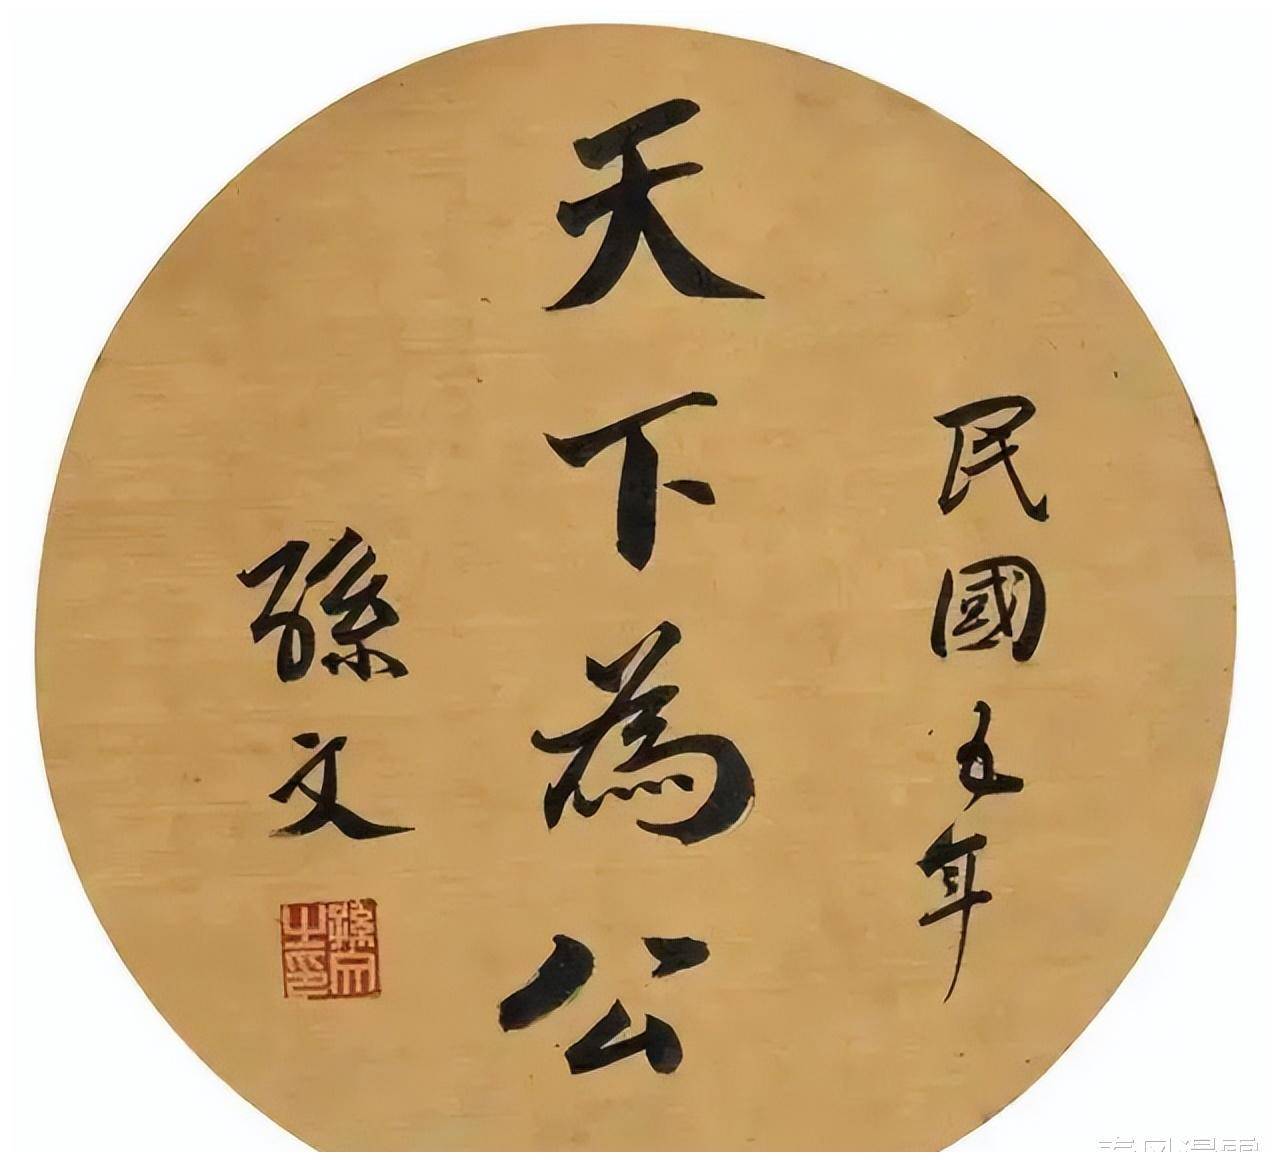 民國五年
天下為公
孫文
孫文之印